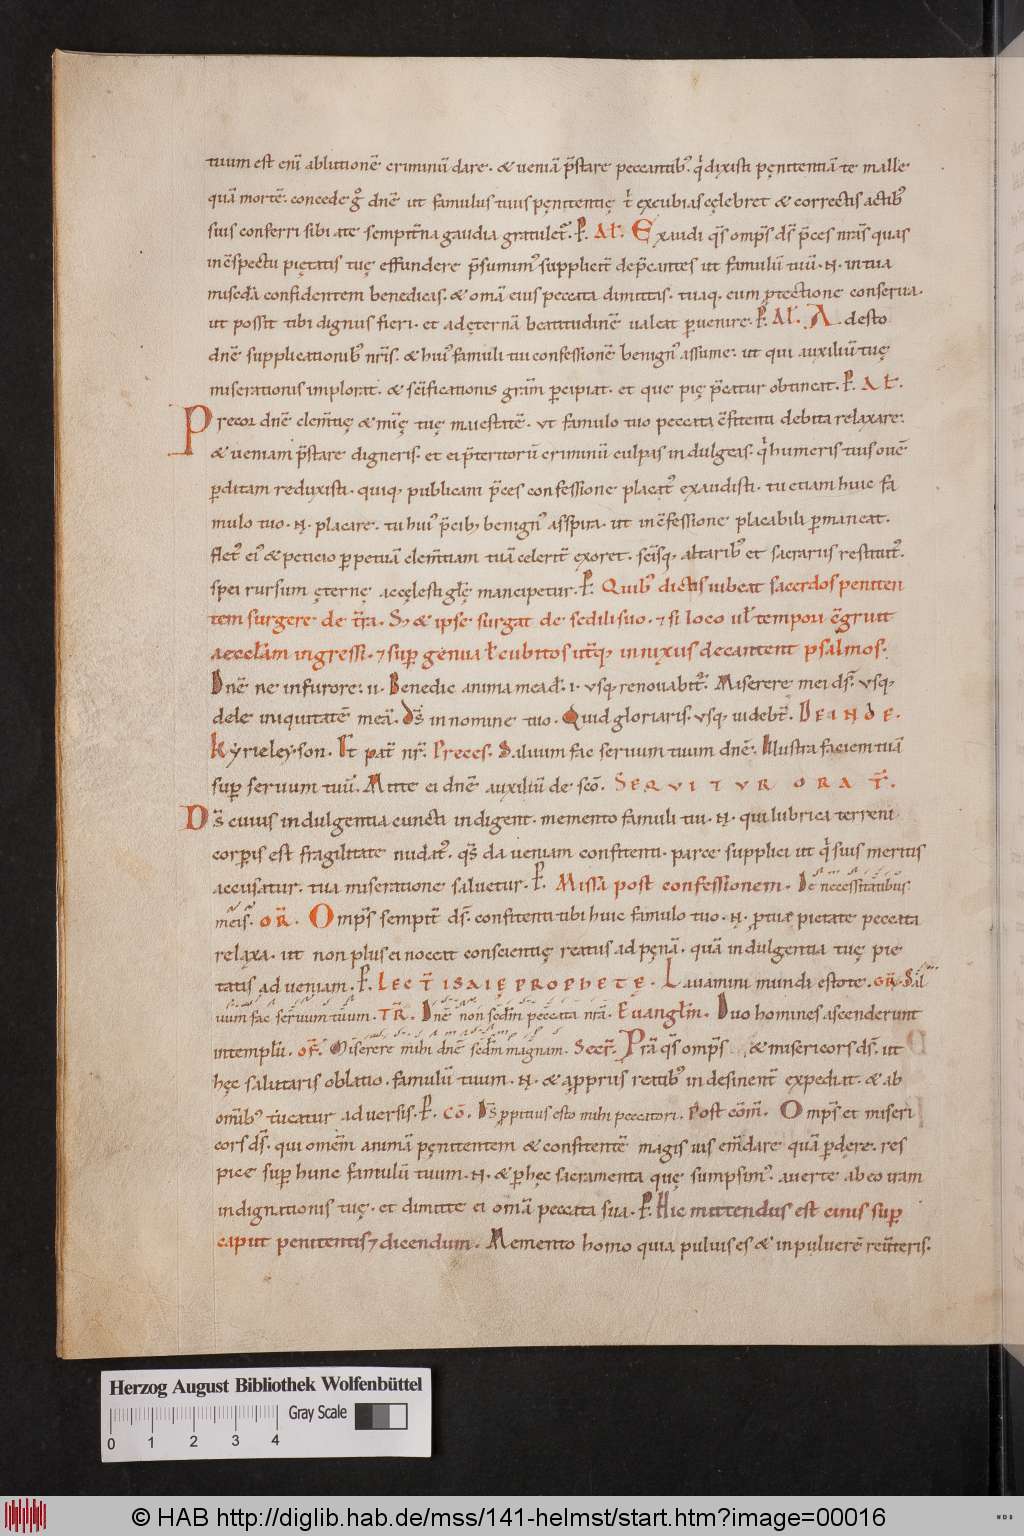 tuum est eni ablutionē criminū dare. & ueniā p̄stare peccantib; q̍ dixisti pęnitentiā te malle
quā mortē. concede ḡ dnē ut famulus tuus pęnitentię t̍ excubias cęlebret & correctis actib;
suis conferri sibi a te sempit̄na gaudia gratulet᷑. P̱. Al̄. Exaudi q̄s omp̄s ds̄ p̄ces nr̄as quas
in c̄spectu pietatis tuę effundere p̄sumim; supplicit̄ dep̄cantes ut famulū tuū .N. in tua
misedia confidentem benedicas. & om̄a eius peccata dimittas. tuaq, eum ptectione conserua.
ut possit tibi dignus fieri. et ad ęternā beatitudinē ualeat ꝑuenire. P̱. Al̄. Adesto
dnē supplicationib; nr̄is. & hui; famuli tui confessionē benign; assume. ut qui auxiliū tuę
miserationis implorat. & sc̄ificationis gratiā ꝑcipiat. et que pię p̄catur obtineat. P̱. Al̄.
Precor dnē clem̄tię & mię tuę maiestatē. ut famulo tuo peccata c̄fitenti debita relaxare.
& ueniam p̄stare digneris. et ei p̄teritorū criminū culpas indulgeas. q̍ humeris tuis ouē
ꝑditam reduxisti. quiq, publicani p̄ces confessione placat; exaudisti. tu etiam huic fa
mulo tuo .N. placare. tu hui; p̄cib, benign; asspira. ut in c̄fessione placabili ꝑmaneat.
flet; ei; & peticio ꝑpetuā clem̄tiam tuā celerit̄ exoret. sc̄isq, altarib; et sacrariis restitut;.
spei rursum ęternę ac cęlesti gl̄ę mancipetur. P̱. Quib; dictis iubeat sacerdos peniten
tem surgere de t̄ra. S, & ipse surgat de sedili suo. ⁊ si loco ul̄ tempori c̄gruit
aeccl̄am ingressi. ⁊ suꝑ genua l̄ cubitos ut̄q, innixus decantent psalmos.
Dnē ne in furore. ii. Benedic anima mea d. i. usq, renouabit᷑. Miserere mei ds̄. usq,
dele iniquitatē meā. Ds̄ in nomine tuo. Quid gloriaris. usq, uidebt̄. DEINDE.
Kyrieleyson. Et pat̄ nr̄. Preces. Saluum fac seruum tuum dnē. Illustra faciem tuā
suꝑ seruum tuū. Mitte ei dnē auxiliū de sc̄o. SEQUITUR ORAT̄.
Ds̄ cuius indulgentia cuncti indigent. memento famuli tui .N. qui lubrica terreni
corꝑis est fragilitate nudat;. q̄s da ueniam confitenti. parce supplici ut q̍ suis meritis
accusatur. tua miseratione saluetur. P̱. Missa post confessionem. De necessitatibus
meis. OR̄. Omp̄s sempit̄ ds̄. confitenti tibi huic famulo tuo .N. p tua pietate peccata
relaxa. ut non plus ei noceat conscientię reatus ad pęnā. quā indulgentia tuę pie
tatis ad ueniam. P̱. LECT̄ ISAIĘ PROPHETĘ. Lauamini mundi estote. GR̄. Sal
uum fac seruum tuum. TR̄. Dnē non sedm peccata nr̄a. Euangl̄m. Duo homines ascenderunt
in templū. OF̄. Miserere mihi dnē sedm magnam. Secr̄. Pr̄a q̄s omp̄s & misericors ds̄. ut
hęc salutaris oblatio. famulū tuum .N. & a pprius reatib; indesinent̄ expediat. & ab
omib; tueatur aduersis. P̱. CŌ. Ds̄ ppitius esto mihi peccatori. Post com̄. Omp̄s et miseri
cors ds̄. qui omem̄ animā pęnitentem & confitentē magis uis em̄dare quā ꝑdere. res
pice suꝑ hunc famulū tuum .N. & ꝑ hęc sacramenta quę sumpsim;. auerte ab eo iram
indignationis tuę. et dimitte ei om̄a peccata sua. P̱. Hic mittendus est cinis suꝑ
caput penitentis ⁊ dicendum. Memento homo quia puluis es & in puluerē reūteris.
Herzog August Bibliothek Wolfenbüttel
Gray Scale
0 1 2 3 4
© HAB http://diglib.hab.de/mss/141-helmst/start.htm?image=00016